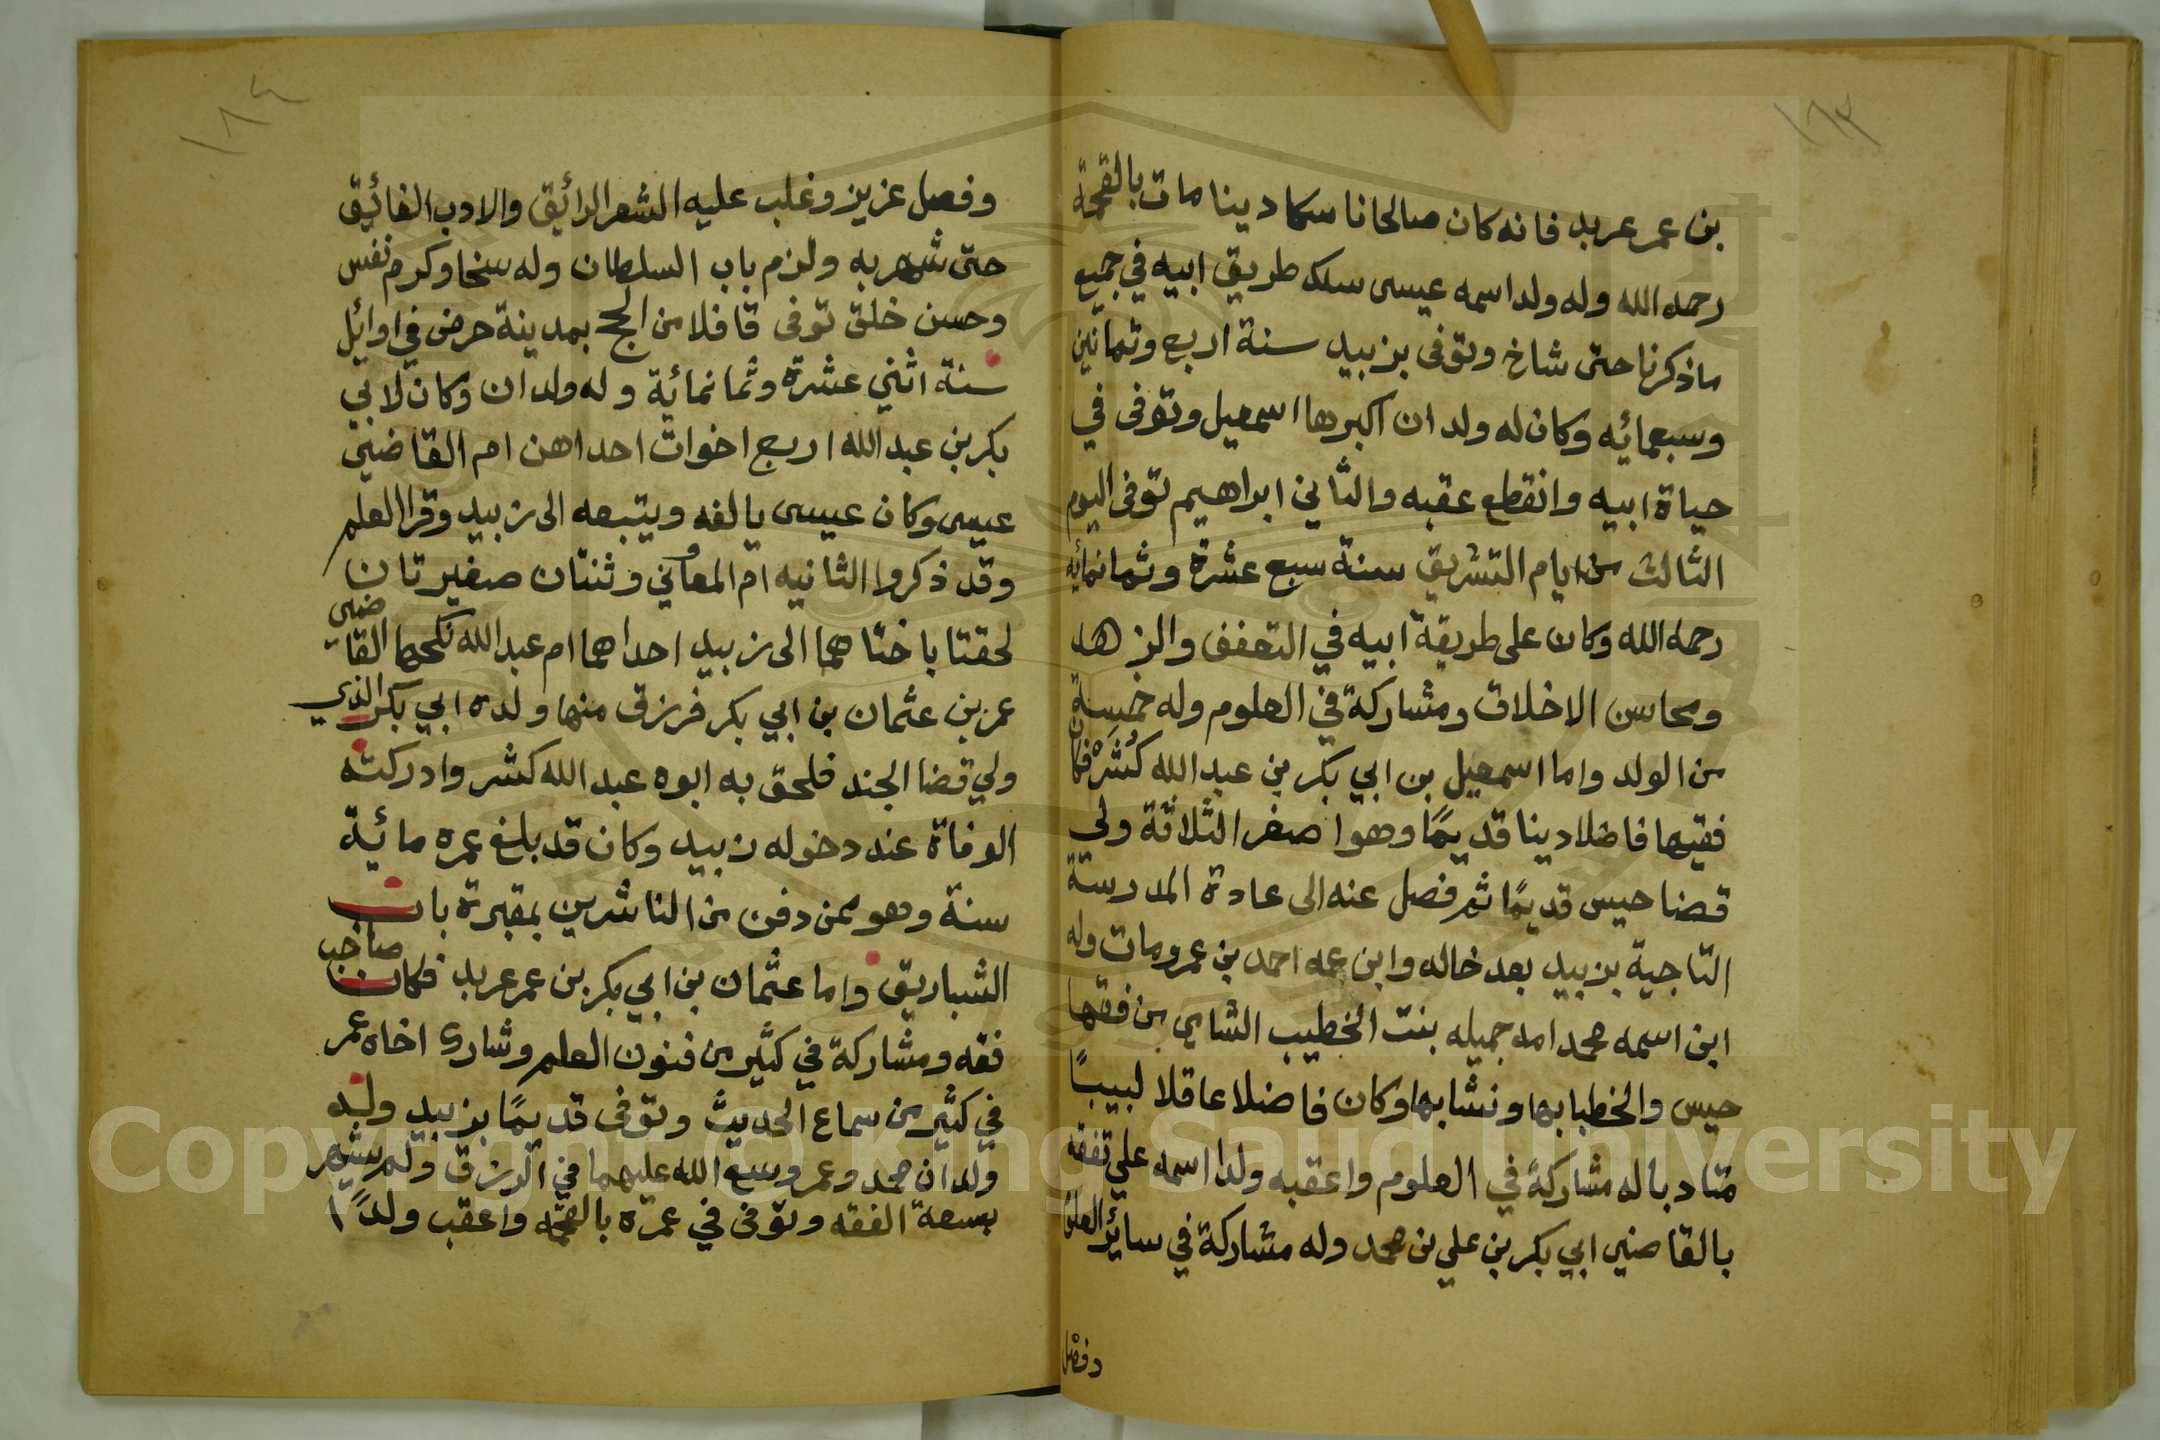 ١٨٣
بن عمر عربد فانه كان صالحا ناسكا دينا مات بالقحمة
رحمه الله وله ولد اسمه عيسى سلك طريق ابيه في جميع
ماذكرنا حتى شاخ وتوفى بزبيد سنة اربع وثمانين
وسبعمائه وكان له ولدان اكبرها اسمعيل وتوفى في
حياة ابيه وانقطع عقبه والثاني ابراهيم توفى اليوم
الثالث من ايام التشريق سنة سبع عشرة وثمانمائه
رحمه الله وكان على طريقة ابيه في التعفف والزهد
ومحاسن الاخلاق ومشاركة في العلوم وله خمسة
من الولد واما اسمعيل بن ابي بكر بن عبد الله كُشَرْ فكان
فقيها فاظلا دينا قديمًا وهو اصغر الثلاثة ولى
قضا حيس قديمًا ثم فصل عنه الى عادة المدرسة
التاجية بزبيد بعد خاله وابن عمه احمد بن عمر ومات وله
ابن اسمه محمد امه جميله بنت الخطيب الشاي من فقها
حيس والخطبا بها ونشا بها وكان فاضلا عاقلا لبيبًا
متادبا له مشاركة في العلوم واعقبه ولدا اسمه علي تفقه
بالقاضي ابي بكر بن علي بن محمد وله مشاركة في سائر العلوم
وفضل
١٨٤
وفصل عزيز وغلب عليه الشعر الرائق والادب الفائق
حتى شهر به ولزم باب السلطان وله سخا وكرم نفس
وحسن خلق توفى قافلا من الحج بمدينة حرض في اوائل
سنة اثني عشرة وثمانمائة وله ولدان وكان لابي
بكر بن عبد الله اربع اخوات احداهن ام القاضي
عيسى وكان عيسى يالفه ويتبعه الى زبيد وقرا العلم
وقد ذكروا الثانيه ام المعافي وثنتان صغيرتان
لحقتا باختاهما الى زبيد احداهما ام عبد الله نكحها القاضي
عمر بن عثمان بن ابي بكر فرزق منها ولده ابي بكر الذي
ولي قضا الجند فلحق به ابوه عبد الله كشر وادركته
الوفاة عند دخوله زبيد وكان قد بلغ عمره مائة
سنة وهو ممن دفن من الناشرين بمقبرة باب
الشباريق واما عثمان بن ابي بكر بن عمر عربد فكان صاحب
فقه ومشاركة في كثير من فنون العلم وشارك اخاه عمر
في كثير من سماع الحديث وتوفى قديمًا بزبيد وله
ولدان محمد وعمر وسع الله عليهما في الرزق ولم يشهر
بسعة الفقه وتوفى في عمره بالقحمه واعقب ولدًا
Copyright © King Saud University